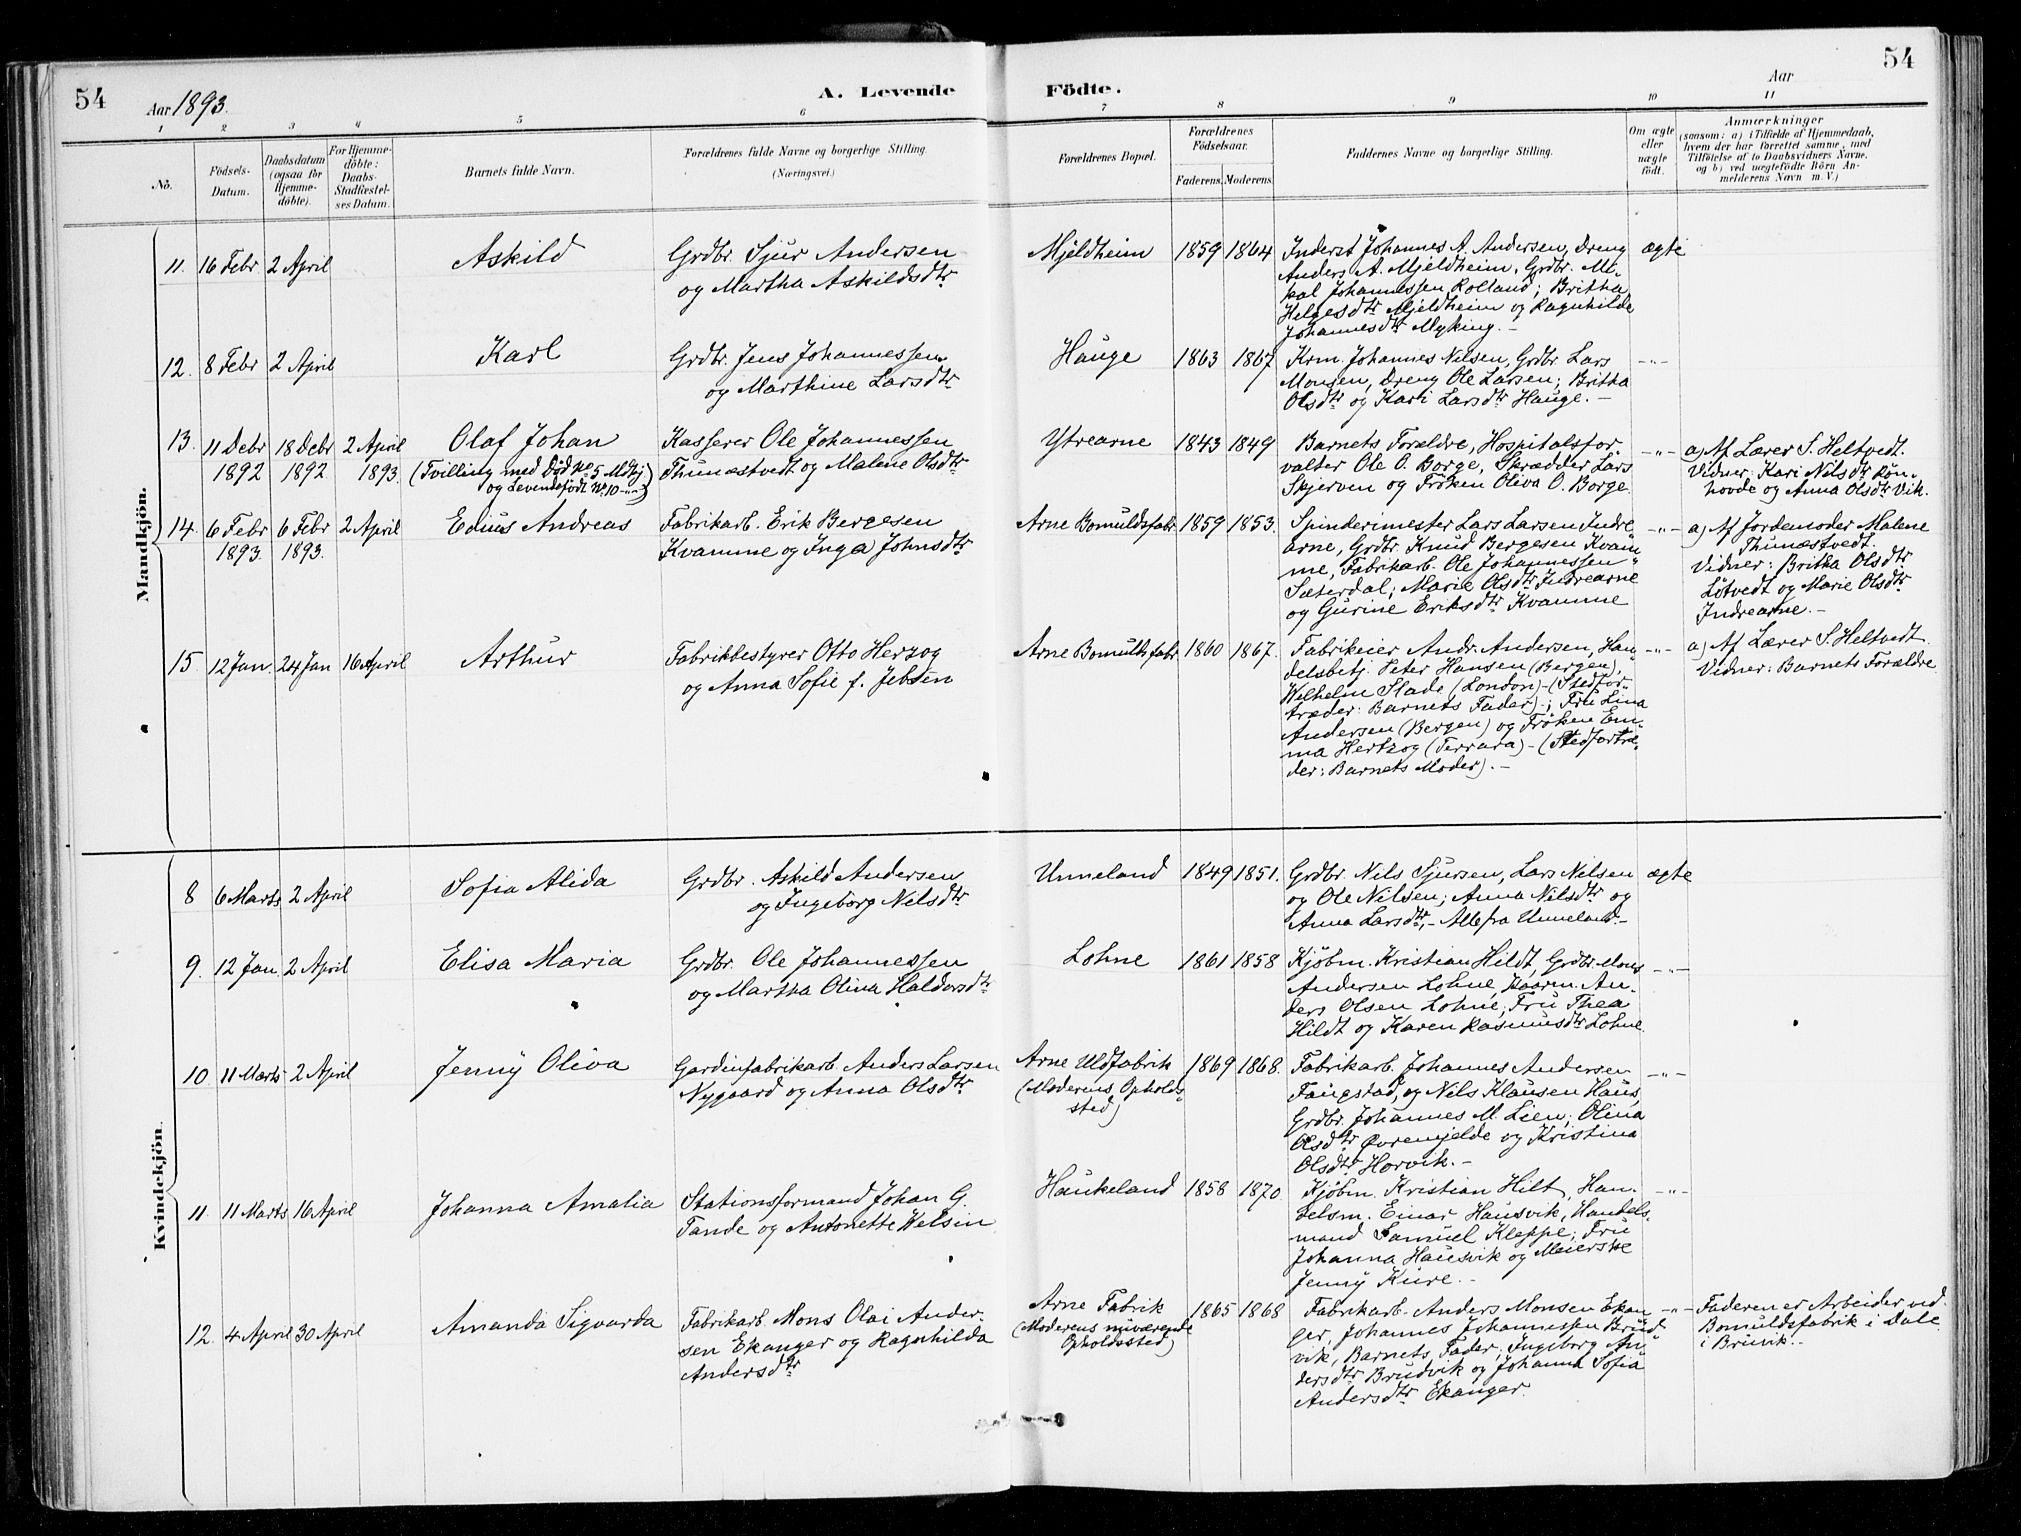 54
Aar 1893.
A. Levende Födte.
Aar
54
1 2 3 4 5 6 7 8 9 10 11
No.
Födsels-Datum.
Daabsdatum (ogsaa for Hjemme-döbte).
For Hjemme-döbte: Daabs-Stadfæstelses Datum.
Barnets fulde Navn.
Forældrenes fulde Navne og borgerlige Stilling. (Næringsvei.)
Forældrenes Bopæl.
Forældrenes Födselsaar.
Faderens. Moderens.
Faddernes Navne og borgerlige Stilling.
Om ægte eller uægte födt.
Anmærkninger
(saasom: a) i Tilfælde af Hjemmedaab, hvem der har forrettet samme, med Tilföielse af to Daabsvidners Navne, og b) ved uægtefödte Börn Anmelderens Navn m. V.)
Mandkjön.
11. 16 Febr 2 April
Askild
Grdbr. Sjur Andersen
og Martha Askildsdtr
Mjeldheim 1859 1864
Inderst Johannes A. Andersen, Dreng
Anders A. Mjeldheim, Grdbr. Mi-
kal Johannessen Rolland; Britha
Helgesdtr Mjeldheim og Ragnhilde
Johannesdtr Myking. -
ægte
12. 8 Febr 2 April
Karl
Grdbr. Jens Johannessen
og Marthine Larsdtr
Hauge 1863 1867
Krm. Johannes Nilsen, Grdbr. Lars
Monsen, Dreng Ole Larsen; Britha
Olsdtr og Kari Larsdtr Hauge. -
-"-
13. 11 Debr 18 Debr 2 April
1892 1892 1893
Olaf Johan
(Tvilling med Död No 5 Mdkj
og Levendefödt No 10 -"-)
Kasserer Ole Johannessen
Thunæstvedt og Malene Olsdtr
Ytrearne 1843 1849
Barnets Forældre, Hospitalsfor-
valter Ole O. Borge, Skrædder Lars
Skjerven og Fröken Oliva O. Borge.
-"-
a) Af Lærer S. Heltvedt.
Vidner: Kari Nilsdtr Rön-
hovde og Anna Olsdtr Vik.
14. 6 Febr 6 Febr 2 April
1893. 1893.
Edius Andreas
Fabrikarb. Erik Bergesen
Kvamme og Inga Johnsdtr
Arne Bomuldsfabr. 1859 1853.
Spinderimester Lars Larsen Indre
arne, Grdbr. Knud Bergesen Kvam-
me, Fabrikarb. Ole Johannessen
Sæterdal; Marie Olsdtr Indrearne
og Gurine Eriksdtr Kvamme
-"-
a) Af Jordemoder Malene
Thunæstvedt.
Vidner: Britha Olsdtr
Lötvedt og Marie Olsdtr
Indrearne. -
15. 12 Jan. 24 Jan 16 April
Arthur
Fabrikbestyrer Otto Herzog
og Anna Sofie f. Jebsen
Arne Bomuldsfabr. 1860 1867.
Fabrikeier Andr. Andersen, Han-
delsbetj. Peter Hansen (Bergen),
Wilhelm Slade (London) - (Stedfor-
træder: Barnets Fader); Fru Lina
Andersen (Bergen) og Fröken Em-
ma Hertzog (Ferrara) - (Stedfortræ-
der: Barnets Moder). -
-"-
a) Af Lærer S. Heltvedt.
Vidner: Barnets Forældre
Kvindekjön.
8 6 Marts 2 April
Sofia Alida
Grdbr. Askild Andersen
og Ingeborg Nilsdtr
Unneland 1849 1851.
Grdbr. Nils Sjursen, Lars Nilsen
og Ole Nilsen; Anna Nilsdtr og
Anna Larsdtr, - Alle fra Unneland. -
ægte
9. 12 Jan. 2 April
Elisa Maria
Grdbr. Ole Johannessen
og Martha Olina Haldorsdtr
Lohne 1861 1858
Kjöbm. Kristian Hildt, Grdbr. Mons
Andersen Lohne, Kaarm. An-
ders Olsen Lohne; Fru Thea
Hildt og Karen Rasmusdtr Lohne.
-"-
10 11 Marts 2 April
Jenny Oliva
Gardinfabrikarb. Anders Larsen
Nygaard og Anna Olsdtr
Arne Uldfabrik
(Moderens Opholds-
sted)
1869 1868.
Fabrikarb. Johannes Andersen
Faugstad, og Nils Klausen Haus,
Grdbr. Johannes M. Lien; Olina
Olsdtr Övremjelde og Kristina
Olsdtr Horvik. -
-"-
11. 11 Marts 16 April
Johanna Amalia
Stationsformand Johan G.
Tande og Antonette Welsin
Haukeland 1858 1870.
Kjöbm. Kristian Hilt, Han-
delsm. Einar Hausvik, Handels-
mand Samuel Kleppe; Fru
Johanna Hausvik og Meierske
Jenny Kure. -
-"-
12. 4 April 30 April
Amanda Sigvarda
Fabrikarb. Mons Olai Ander-
sen Ekanger og Ragnhilda
Andersdtr
Arne Fabrik
(Moderens nuværende
Opholdssted)
1865 1868
Fabrikarb. Anders Monsen Ekan-
ger, Johannes Johannessen Brud-
vik, Barnets Fader; Ingeborg An-
dersdtr Brudvik og Johanna Sofia
Andersdtr Ekanger.
-"-
Faderen er Arbeider ved
Bomuldsfabrik i Dale
i Bruvik. -